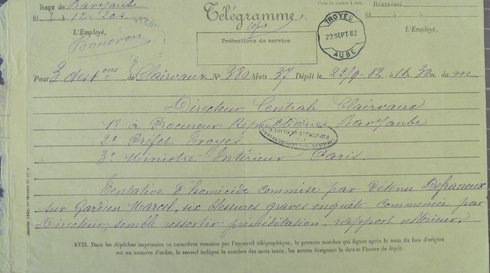 Reçu de Bar s/aube
à 12 20 s
L'Employé,
Télégramme
Indications de service.
TROYES
22 SEPT 82
AUBE
L'Employé,
Pour 3 destons de Clairvaux N° 380 Mots 37 Dépôt le 22/9 82 à 11h 30 m
Directeur Centrale Clairvaux
1° à Procureur République Bar s/aube
2° Préfet Troyes
3° Ministre Intérieur Paris
Tentative d'homicide commise par détenu
sur Gardien Marcel, six blessures graves enquête commencée par
Directeur, semble ressortir préméditation, rapport ultérieur.
AVIS. Dans les dépêches imprimées en caractères romains par l'appareil télégraphique, le premier nombre qui figure après le nom du lieu d'origine
est un numéro d'ordre, le second indique le nombre des mots taxés, les autres désignent la date et l'heure de dépôt.